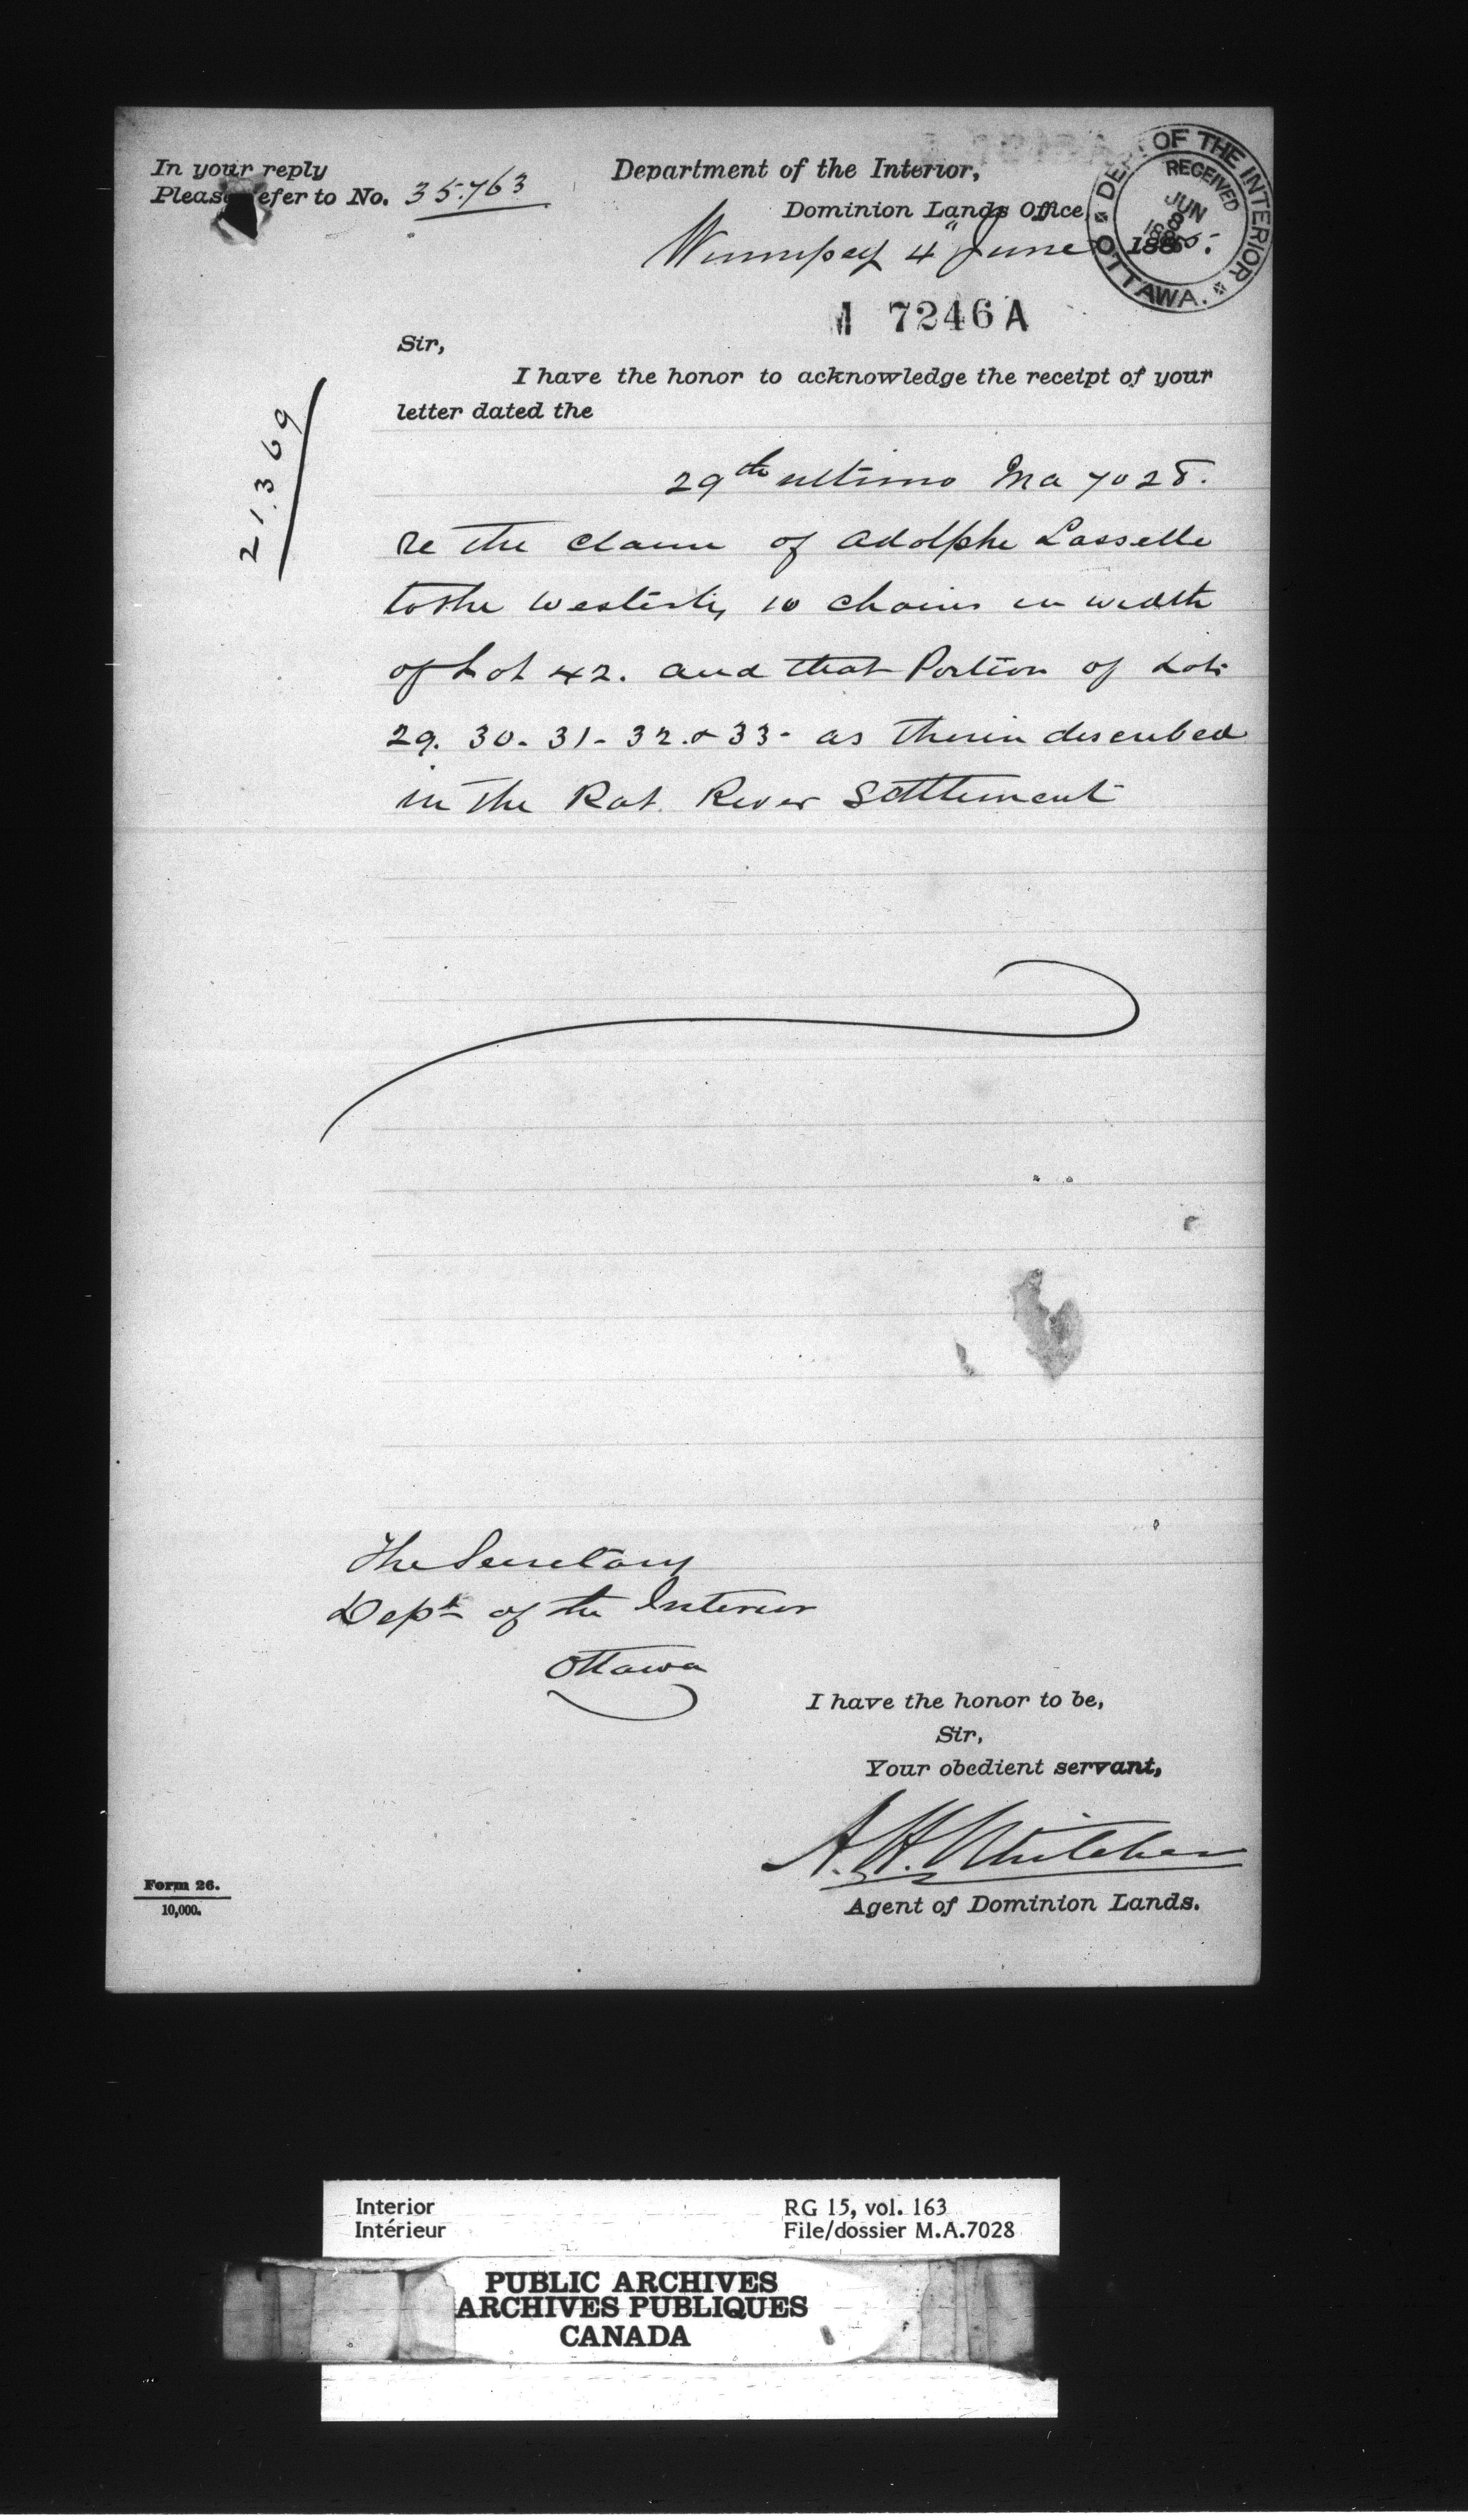 In your reply
Please refer to No. 35.763
Department of the Interior,
Dominion Lands Office
Winnipeg 4" June 1885.
DEPT. OF THE INTERIOR
OTTAWA.
RECEIVED
JUN
8
1885
7246 A
21.369
Sir,
I have the honor to acknowledge the receipt of your
letter dated the
29th ultimo Ma 7028.
re the claim of Adolphe Lasselle
to the westerly 10 chains in width
of Lot 42. and that Portion of Lots
29. 30. 31- 32. & 33- as therein described
in the Rat River Settlement
The Secretary
Dept of the Interior
Ottawa
I have the honor to be,
Sir,
Your obedient servant,
A. H. Whitcher
Agent of Dominion Lands.
Form 26.
10,000.
Interior
Intérieur
RG 15, vol. 163
File/dossier M.A.7028
PUBLIC ARCHIVES
ARCHIVES PUBLIQUES
CANADA